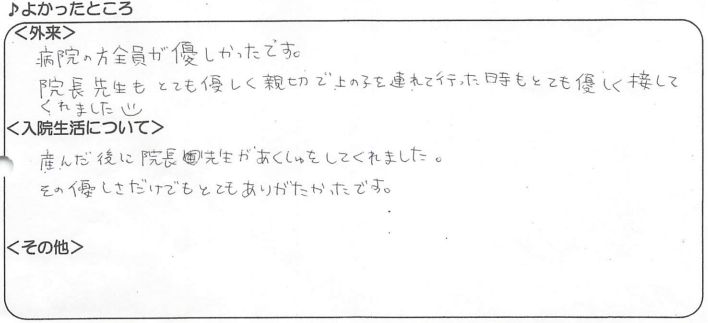 ♪よかったところ
<外来>
病院の方全員が優しかったです。
院長先生もとても優しく親切で上の子を連れて行った時もとても優しく接して
くれました
<入院生活について>
産んだ後に院長先生があくしゅをしてくれました。
その優しさだけでもとてもありがたかったです。
<その他>